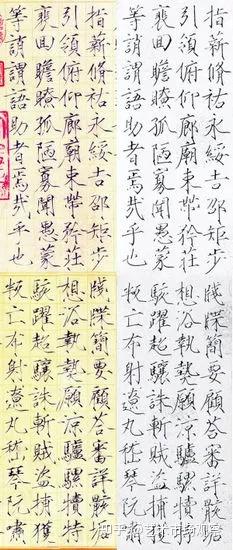 指薪脩祜永綏吉邵矩步
引領俯仰廊廟束帶矜莊
裵回瞻眺孤陋寡聞愚蒙
等誚謂語助者焉哉乎也
指薪脩祜永綏吉邵矩步
引領俯仰廊廟束帶矜莊
裵回瞻眺孤陋寡聞愚蒙
等誚謂語助者焉哉乎也
牋牒簡要顧答審詳骸垢
想浴執熱願涼驢騾犢特
駭躍超驤誅斬賊盜捕獲
叛亡布射遼丸嵇琴阮嘯
牋牒簡要顧答審詳骸垢
想浴執熱願涼驢騾犢特
駭躍超驤誅斬賊盜捕獲
叛亡布射遼丸嵇琴阮嘯
知乎 @艺术市场观察